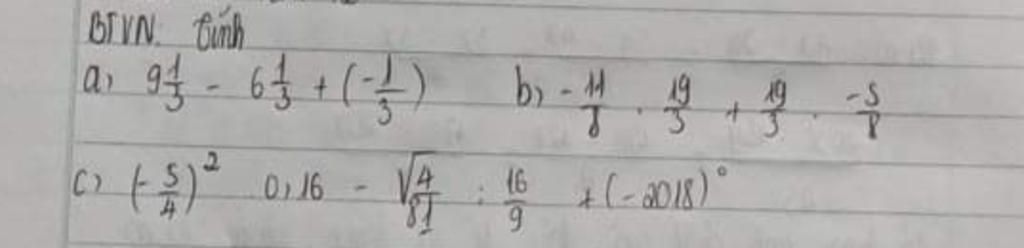 BTVN: tính
a, 9 1/3 - 6 1/3 + (-1/3) b, -11/8 . 19/3 + 19/3 . -5/8
c, (-5/4)² 0,16 - √4/81 : 16/9 + (-2018)°